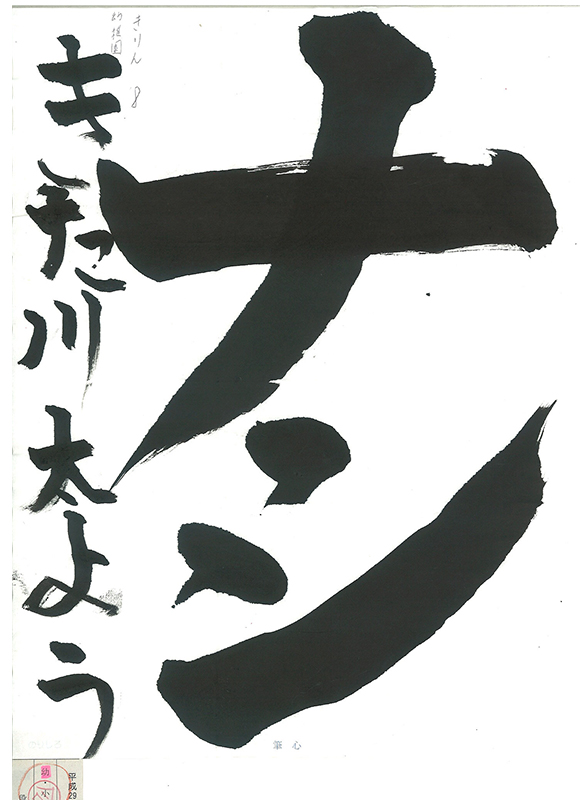 ナン
きりん 8
幼稚園
きた川太よう
筆心
平成29
幼・小